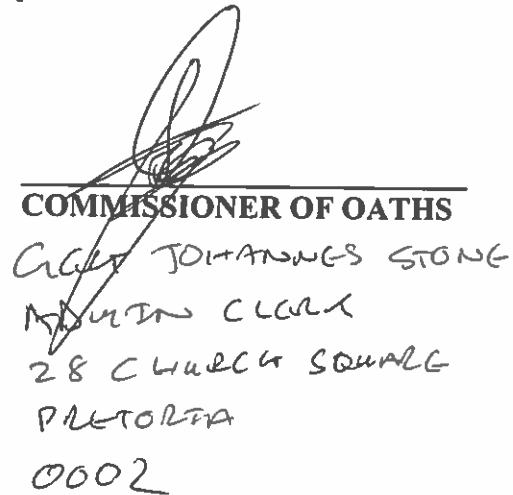 COMMISSIONER OF OATHS
JOHANNES STONE
ADMIN CLERK
28 CHURCH SQUARE
PRETORIA
0002